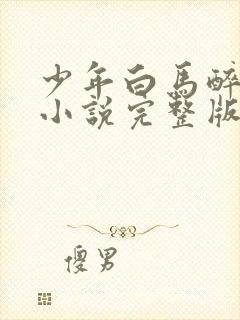 少年白馬醉
小說完整版
傻男